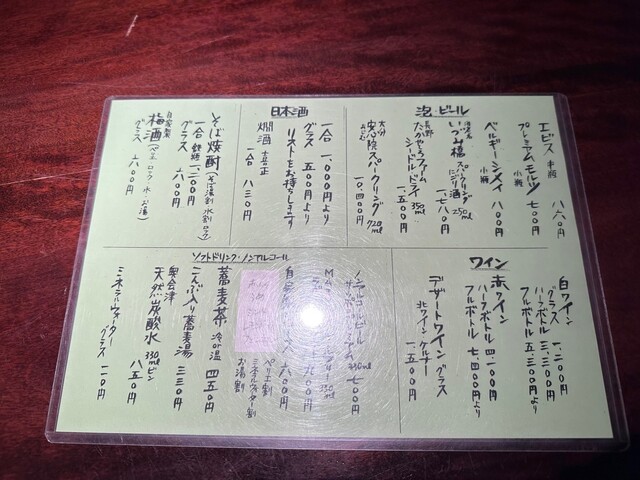 泡・ビール
エビス 中瓶 八六〇円
プレミアムモルツ 小瓶 七〇〇円
ベルギーシメイ 小瓶 八〇〇円
いづみ橋 スパークリングにごり酒 250ml 一、七八〇円
長野
たかやしろファーム
シードルドライ 350ml 一、五〇〇円
大分
安心院スパークリング 720ml 一〇、四〇〇円
日本酒
一合 一、〇〇〇円より
グラス 五〇〇円より
リストをお持ちします
燗酒 一合 八三〇円
そば焼酎(そば湯割 水割 ロック)
一合 一、二〇〇円
グラス 六〇〇円
自家製
梅酒(ロック 水 お湯)
グラス 六〇〇円
ワイン
白ワイン
グラス 一、二〇〇円
ハーフボトル 三、三〇〇円
フルボトル 五、三〇〇円より
赤ワイン
ハーフボトル 四、一〇〇円
フルボトル 七、四〇〇円より
デザートワイン グラス
北ワイン ケルナー 一、五〇〇円
ソフトドリンク・ノンアルコール
ノンアルコールビール
330ml 七〇〇円
九〇〇円
六〇〇円
ペリエ割
ミネラルウォーター割
お湯割
蕎麦茶 冷or温 四五〇円
こんぶ入り蕎麦湯 三三〇円
奥会津
天然炭酸水 330mlビン 八五〇円
ミネラルウォーター グラス 一一〇円